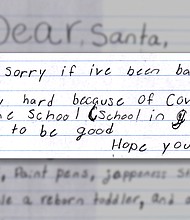 Dear Santa,
sorry if ive been ba
hard because of Cov
e School (School in g
to be good
Hope you
, Paint pens, jappeness s
e a reborn toddler, and